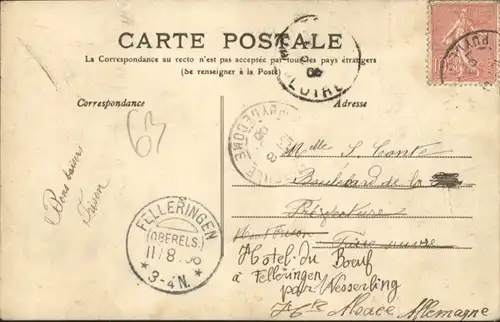 CARTE POSTALE
La Correspondance au recto n'est pas acceptée par tous les pays étrangers
(Se renseigner à la Poste)
Correspondance
Adresse
63
Bons baisers
Melle S. Conté
Boulevard de la
Préfecture
Hotel du Bœuf
à Felleringen
par Wesserling
Alsace Allemagne
FELLERINGEN
(OBERELS.)
11/8.06
* 3-4N. *
PUY-DE-DOME
LOIRE
10